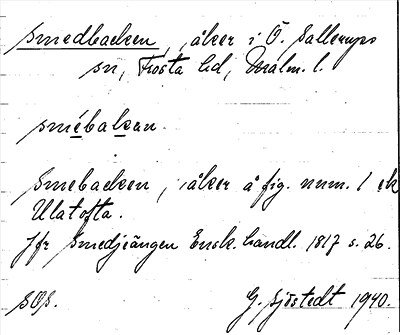 Smedbacken, åker i Ö. Sallerups
sn, Frosta hd, Malm. l.
smébakan.
Smebacken, åker å fig. num. 1 ek
Ulatofta.
Jfr Smedjeängen Ensk. handl. 1817 s. 26.
SOS. G. Sjöstedt 1940.